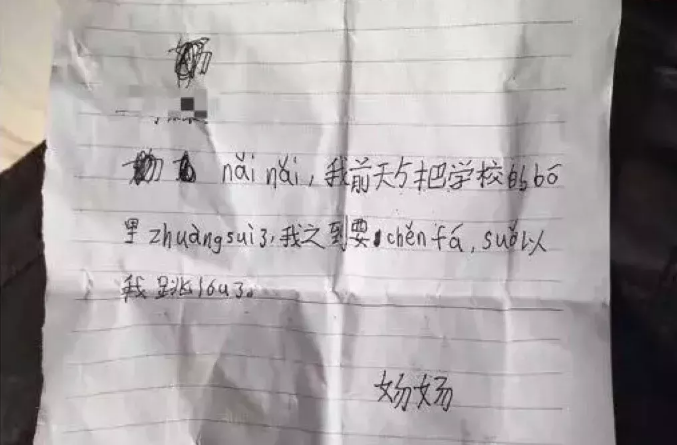 nǎi nǎi,我前天把学校的bō
里zhuàngsuì3,我之到要chěnfá,suǒ以
我跳lóu3。